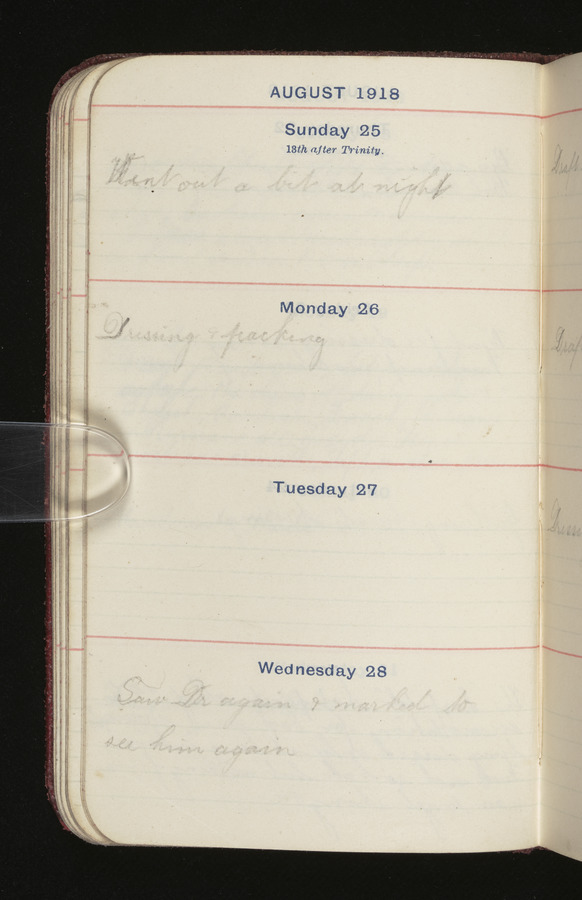 AUGUST 1918
Sunday 25
13th after Trinity.
Went out a bit at night
Monday 26
Dressing & packing
Tuesday 27
Wednesday 28
Saw Dr again & marked to
see him again
Draft
Draf
Dressi